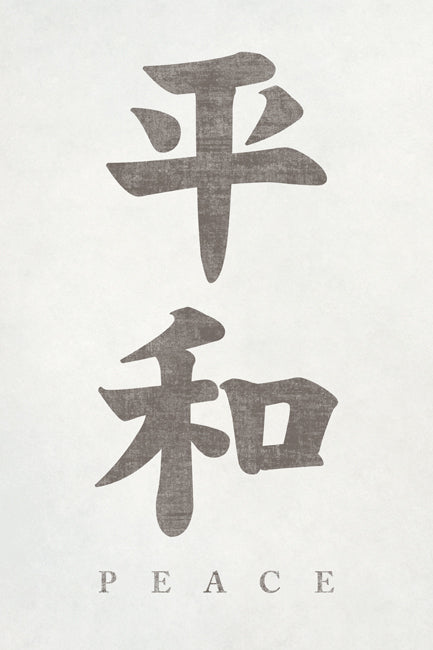 平和
PEACE